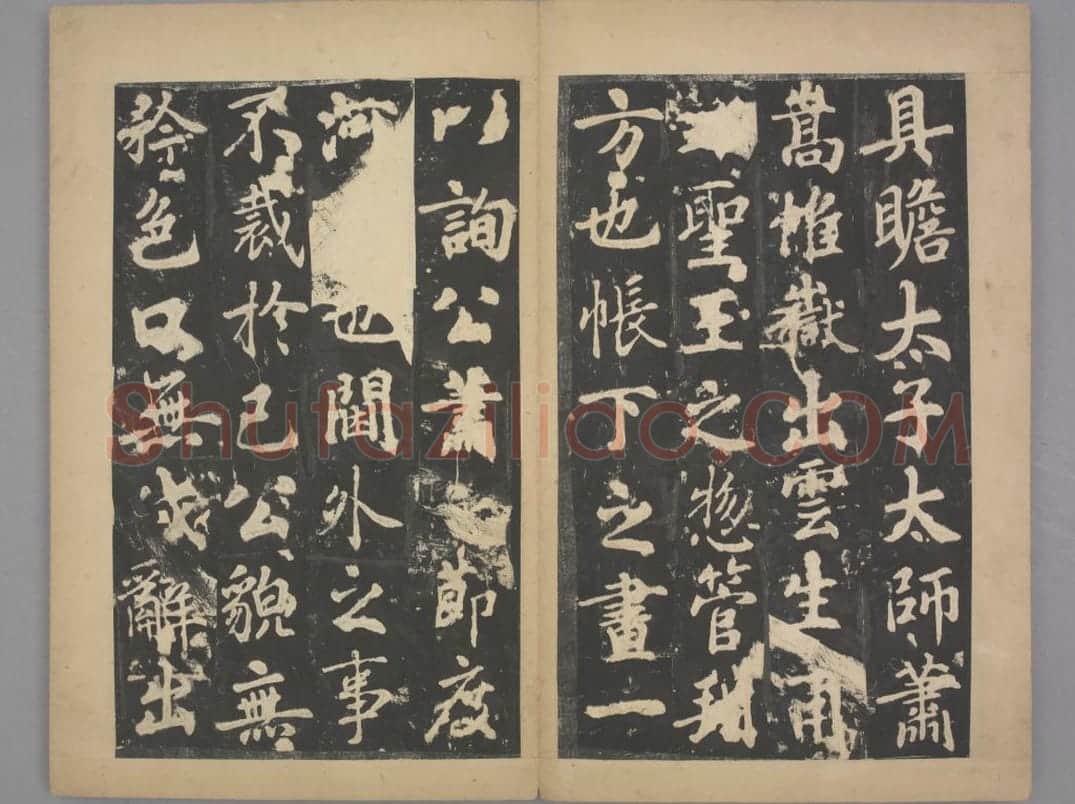 具瞻太子太師蕭
嵩惟嶽出雲生甫
聖王之惣管朔
方也帳下之畫一
以詢公蕭節度
河也閫外之事
不裁於己公貌無
矜色口無伐辭出
Shufaziliao.COM